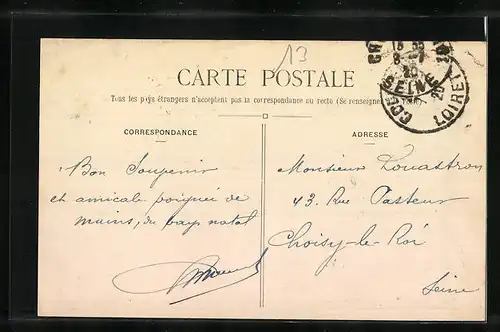 13
CARTE POSTALE
Tous les pays étrangers n'acceptent pas la correspondance au recto (Se renseigner
CORRESPONDANCE
ADRESSE
Bon Souvenir
et amicale poignée de
mains, du pays natal
Monsieur Louastron
43, Rue Pasteur
Choisy-le-Roi
Seine
SEINE
LOIRET
20